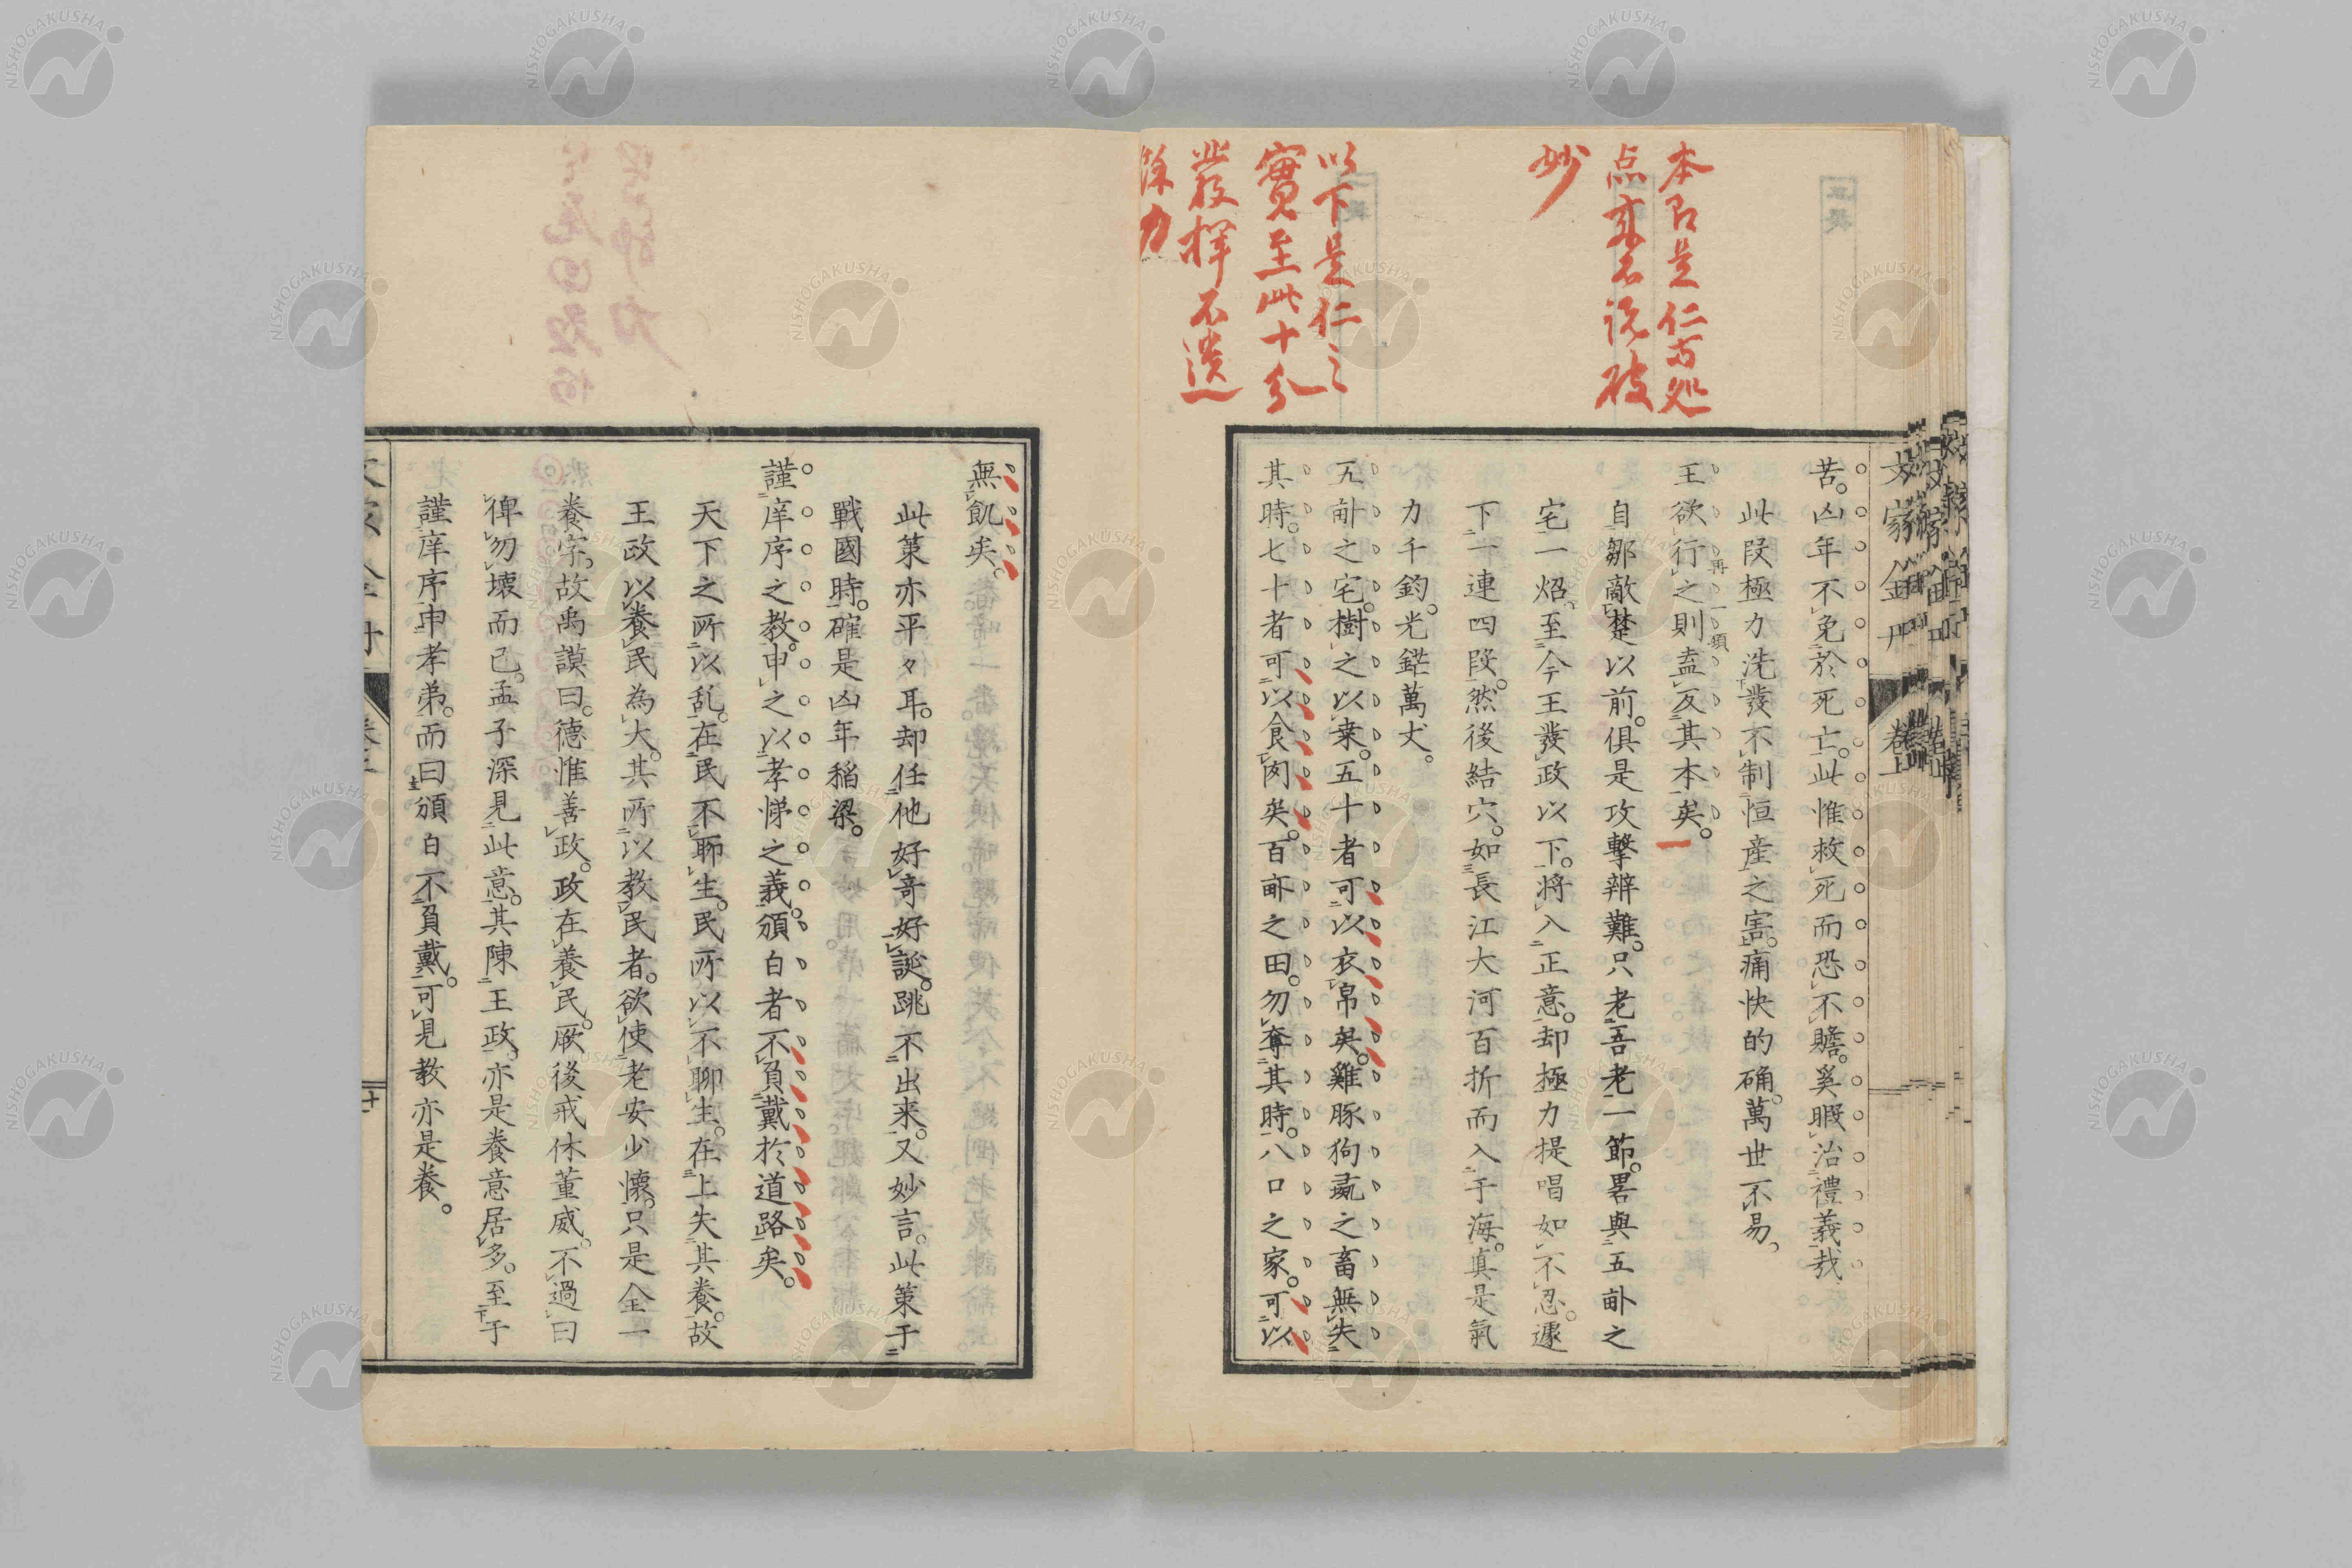 本只是仁方処
点亦不説破
妙
以下是仁之
實至此十分
發揮不遺
餘力
文家金丹 卷上
苦。凶年不免於死亡。此惟救死而恐不贍。奚暇治禮義哉
此段極力洗發不制恒産之害。痛快的确。萬世不易。
王欲行之則盍反其本矣。
再一頓
自鄒敵楚以前。俱是攻擊辨難。只老吾老一節。畧與五畝之
宅一炤。至今王發政以下。將入正意。却極力提唱如不忍。遽
下一連四段。然後結穴。如長江大河百折而入于海。真是氣
力千鈞。光鋩萬丈。
五畝之宅。樹之以桒。五十者可以衣帛矣。雞豚狗彘之畜無失
其時。七十者可以食肉矣。百畝之田。勿奪其時。八口之家。可以
無飢矣。
此策亦平々耳。却任他好奇好誕。跳不出来。又妙言。此策于
戰國時。確是凶年稲梁。
謹庠序之教。申之以孝悌之義。頒白者不負戴於道路矣。
天下之所以乱。在民不聊生。民所以不聊生。在上失其養。故
王政以養民為大。其所以教民者。欲使老安少懷。只是全一
養字。故禹謨曰。德惟善政。政在養民。厥後戒休董威。不過曰
俾勿壊而已。孟子深見此意。其陳王政。亦是養意居多。至于
謹庠序申孝弟。而曰頒白不負戴。可見教亦是養。